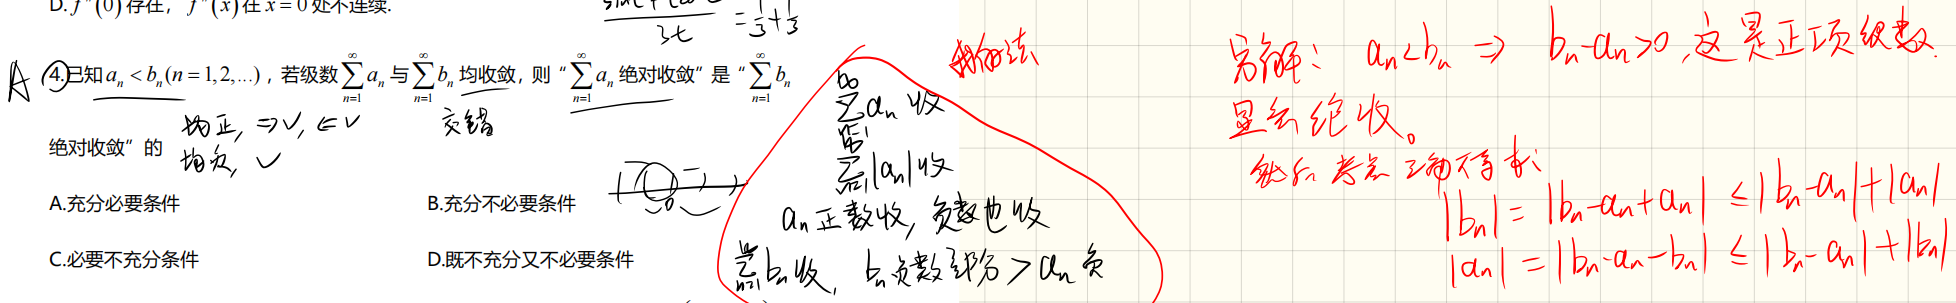 D. f''(0) 存在， f''(x) 在 x = 0 处不连续.
3t
= 1/3 + 1/3
A
4.已知 a_n < b_n (n = 1,2,...)，若级数 ∑_{n=1}^{∞} a_n 与 ∑_{n=1}^{∞} b_n 均收敛，则 “ ∑_{n=1}^{∞} a_n 绝对收敛” 是 “ ∑_{n=1}^{∞} b_n
绝对收敛” 的
均正, ⇒√, ⇐√
交错
均负, √
A.充分必要条件
B.充分不必要条件
C.必要不充分条件
D.既不充分又不必要条件
我的法
∑_{n=1}^{∞} a_n 收
∑_{n=1}^{∞} |a_n| 收
a_n 正数收, 负数也收
∑_{n=1}^{∞} b_n 收, b_n 负数部分 > a_n 负
另解: a_n < b_n ⇒ b_n - a_n > 0, 这是正项级数.
显然绝收。
然后考虑三角不等式:
|b_n| = |b_n - a_n + a_n| ≤ |b_n - a_n| + |a_n|
|a_n| = |b_n - a_n - b_n| ≤ |b_n - a_n| + |b_n|